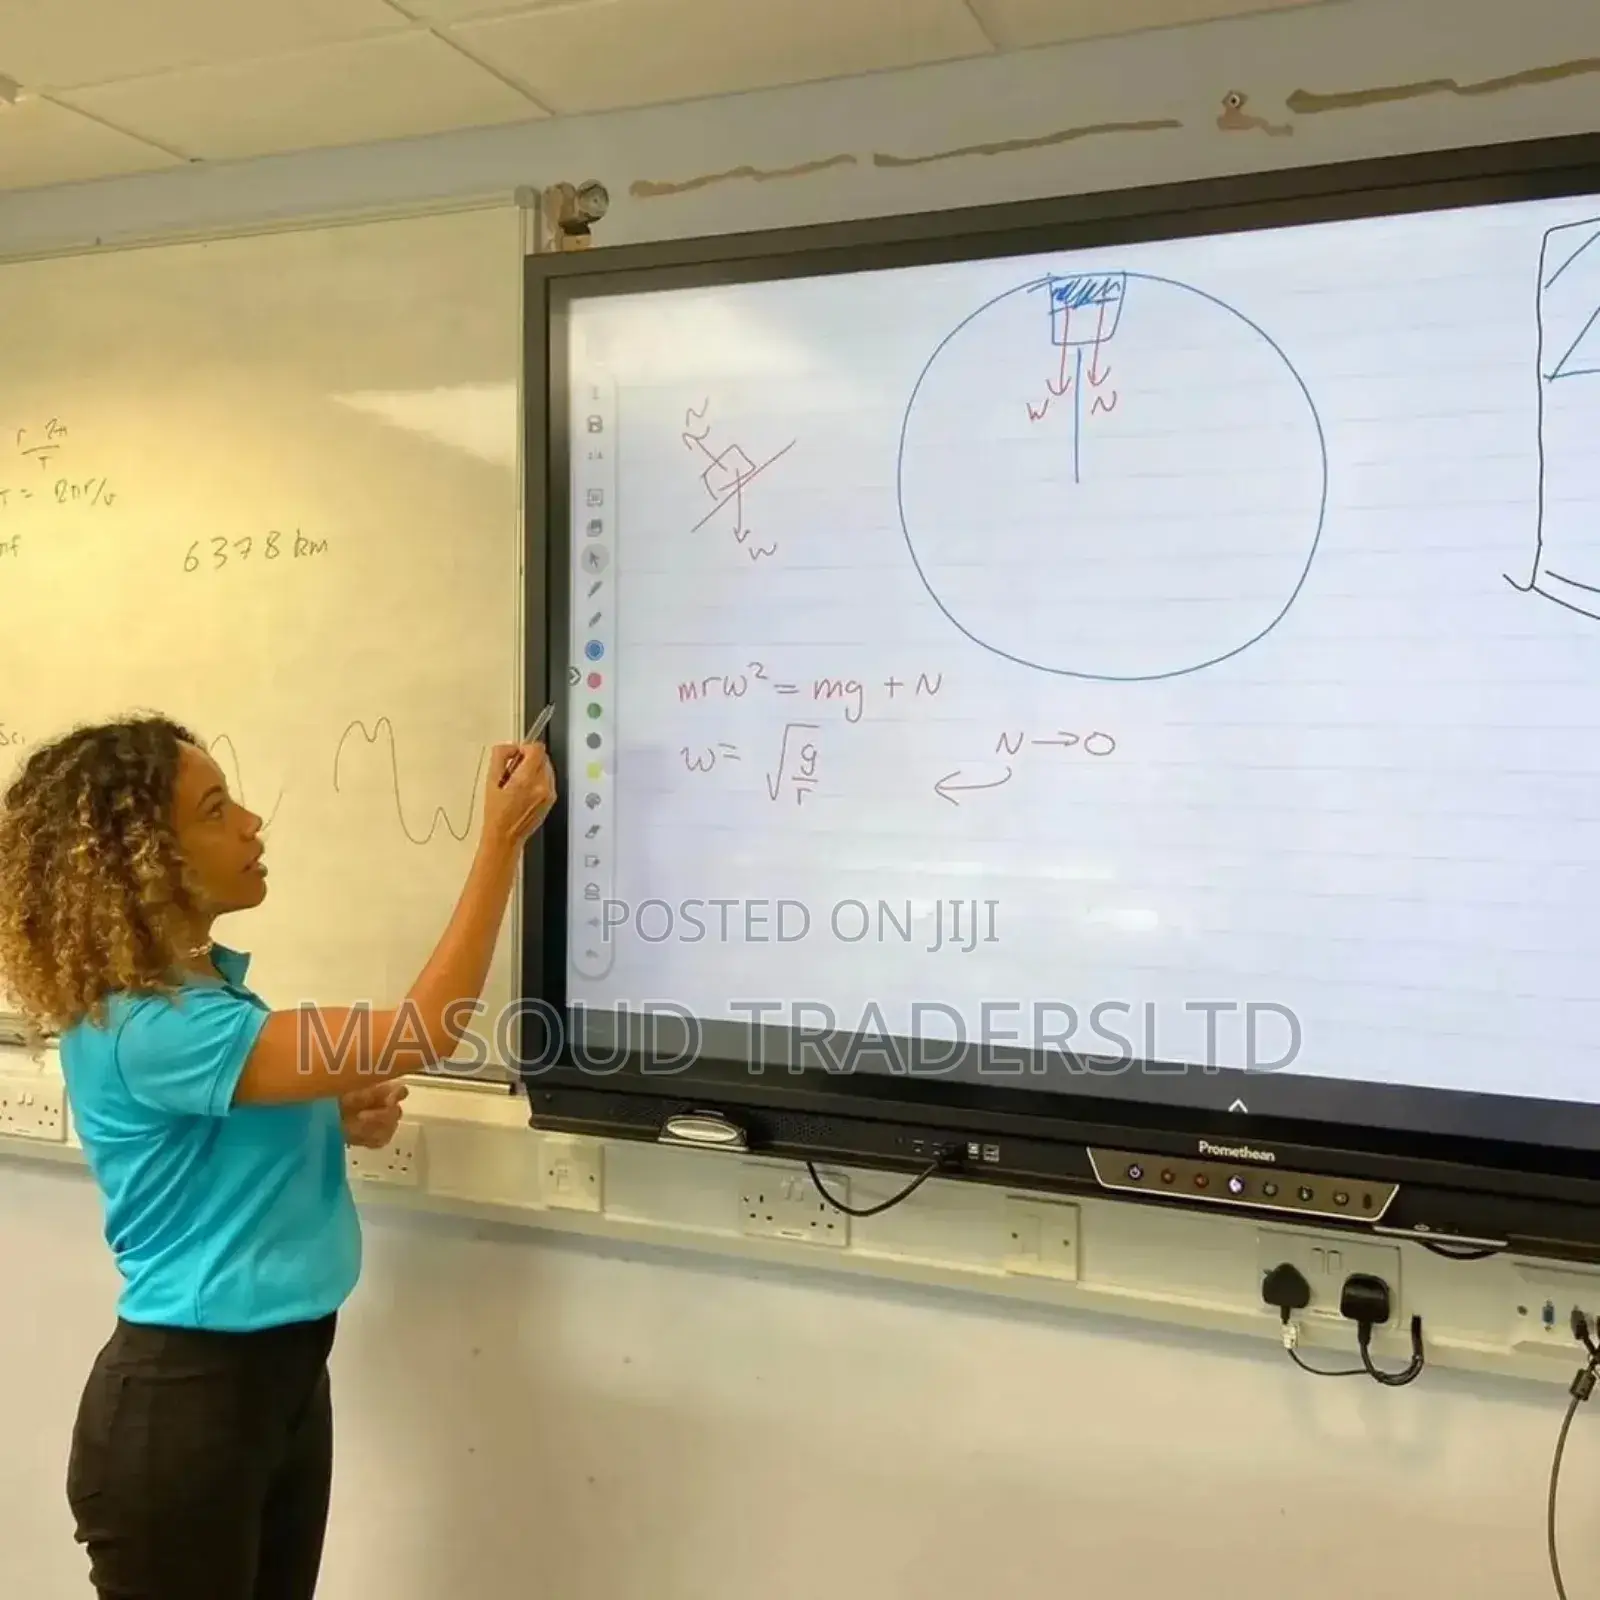 r 2π
T
T = 2πr/v
6378 km
N
W
W N
mrω² = mg + N
ω = √g
r
N → 0
POSTED ON JIJI
MASOUD TRADERSLTD
Promethean